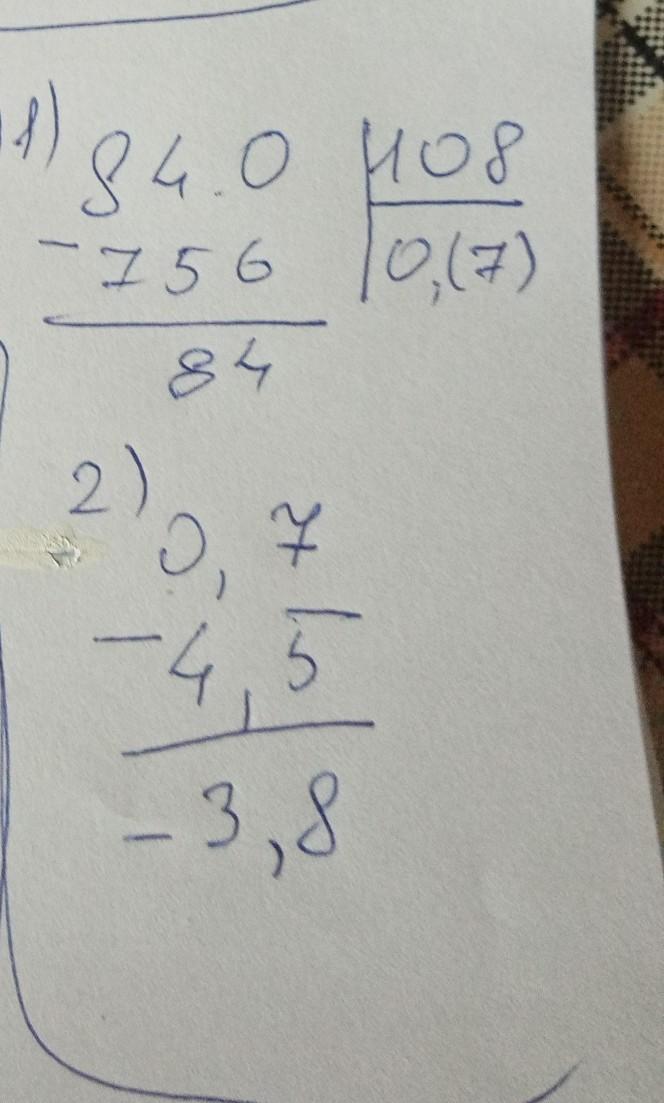 1) 84.0 108
- 756 0,(7)
84
2)
0,7
- 4,5
- 3,8